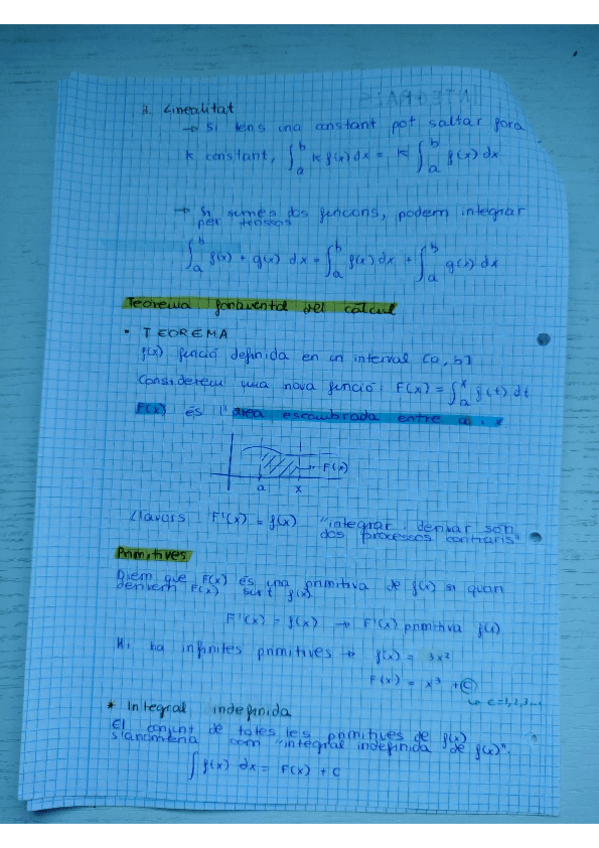 Linealitat
→ Si tens una constant pot saltar fora
K constant, ∫_a^b K f(x) dx = K ∫_a^b f(x) dx
→ Si sumes dos funcions, podem integrar
per trossos
∫_a^b f(x) + g(x) dx = ∫_a^b f(x) dx + ∫_a^b g(x) dx
Teorema fonamental del càlcul
• TEOREMA
f(x) funció definida en un interval [a, b]
Considerem una nova funció: F(x) = ∫_a^x f(t) dt
F(x) és l'àrea escombrada entre a i x
F(x)
a x
Llavors F'(x) = f(x) "integrar i derivar són
dos processos contraris"
Primitives
Diem que F(x) és una primitiva de f(x) si quan
derivem F(x) surt f(x)
F'(x) = f(x) → F'(x) primitiva f(x)
Hi ha infinites primitives → f(x) = 3x²
F(x) = x³ + C
↳ c=1,2,3...
* Integral indefinida
El conjunt de totes les primitives de f(x)
s'anomena com "integral indefinida de f(x)".
∫ f(x) dx = F(x) + C